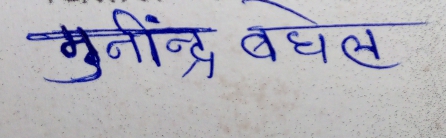 मुनींन्द्र बघेल